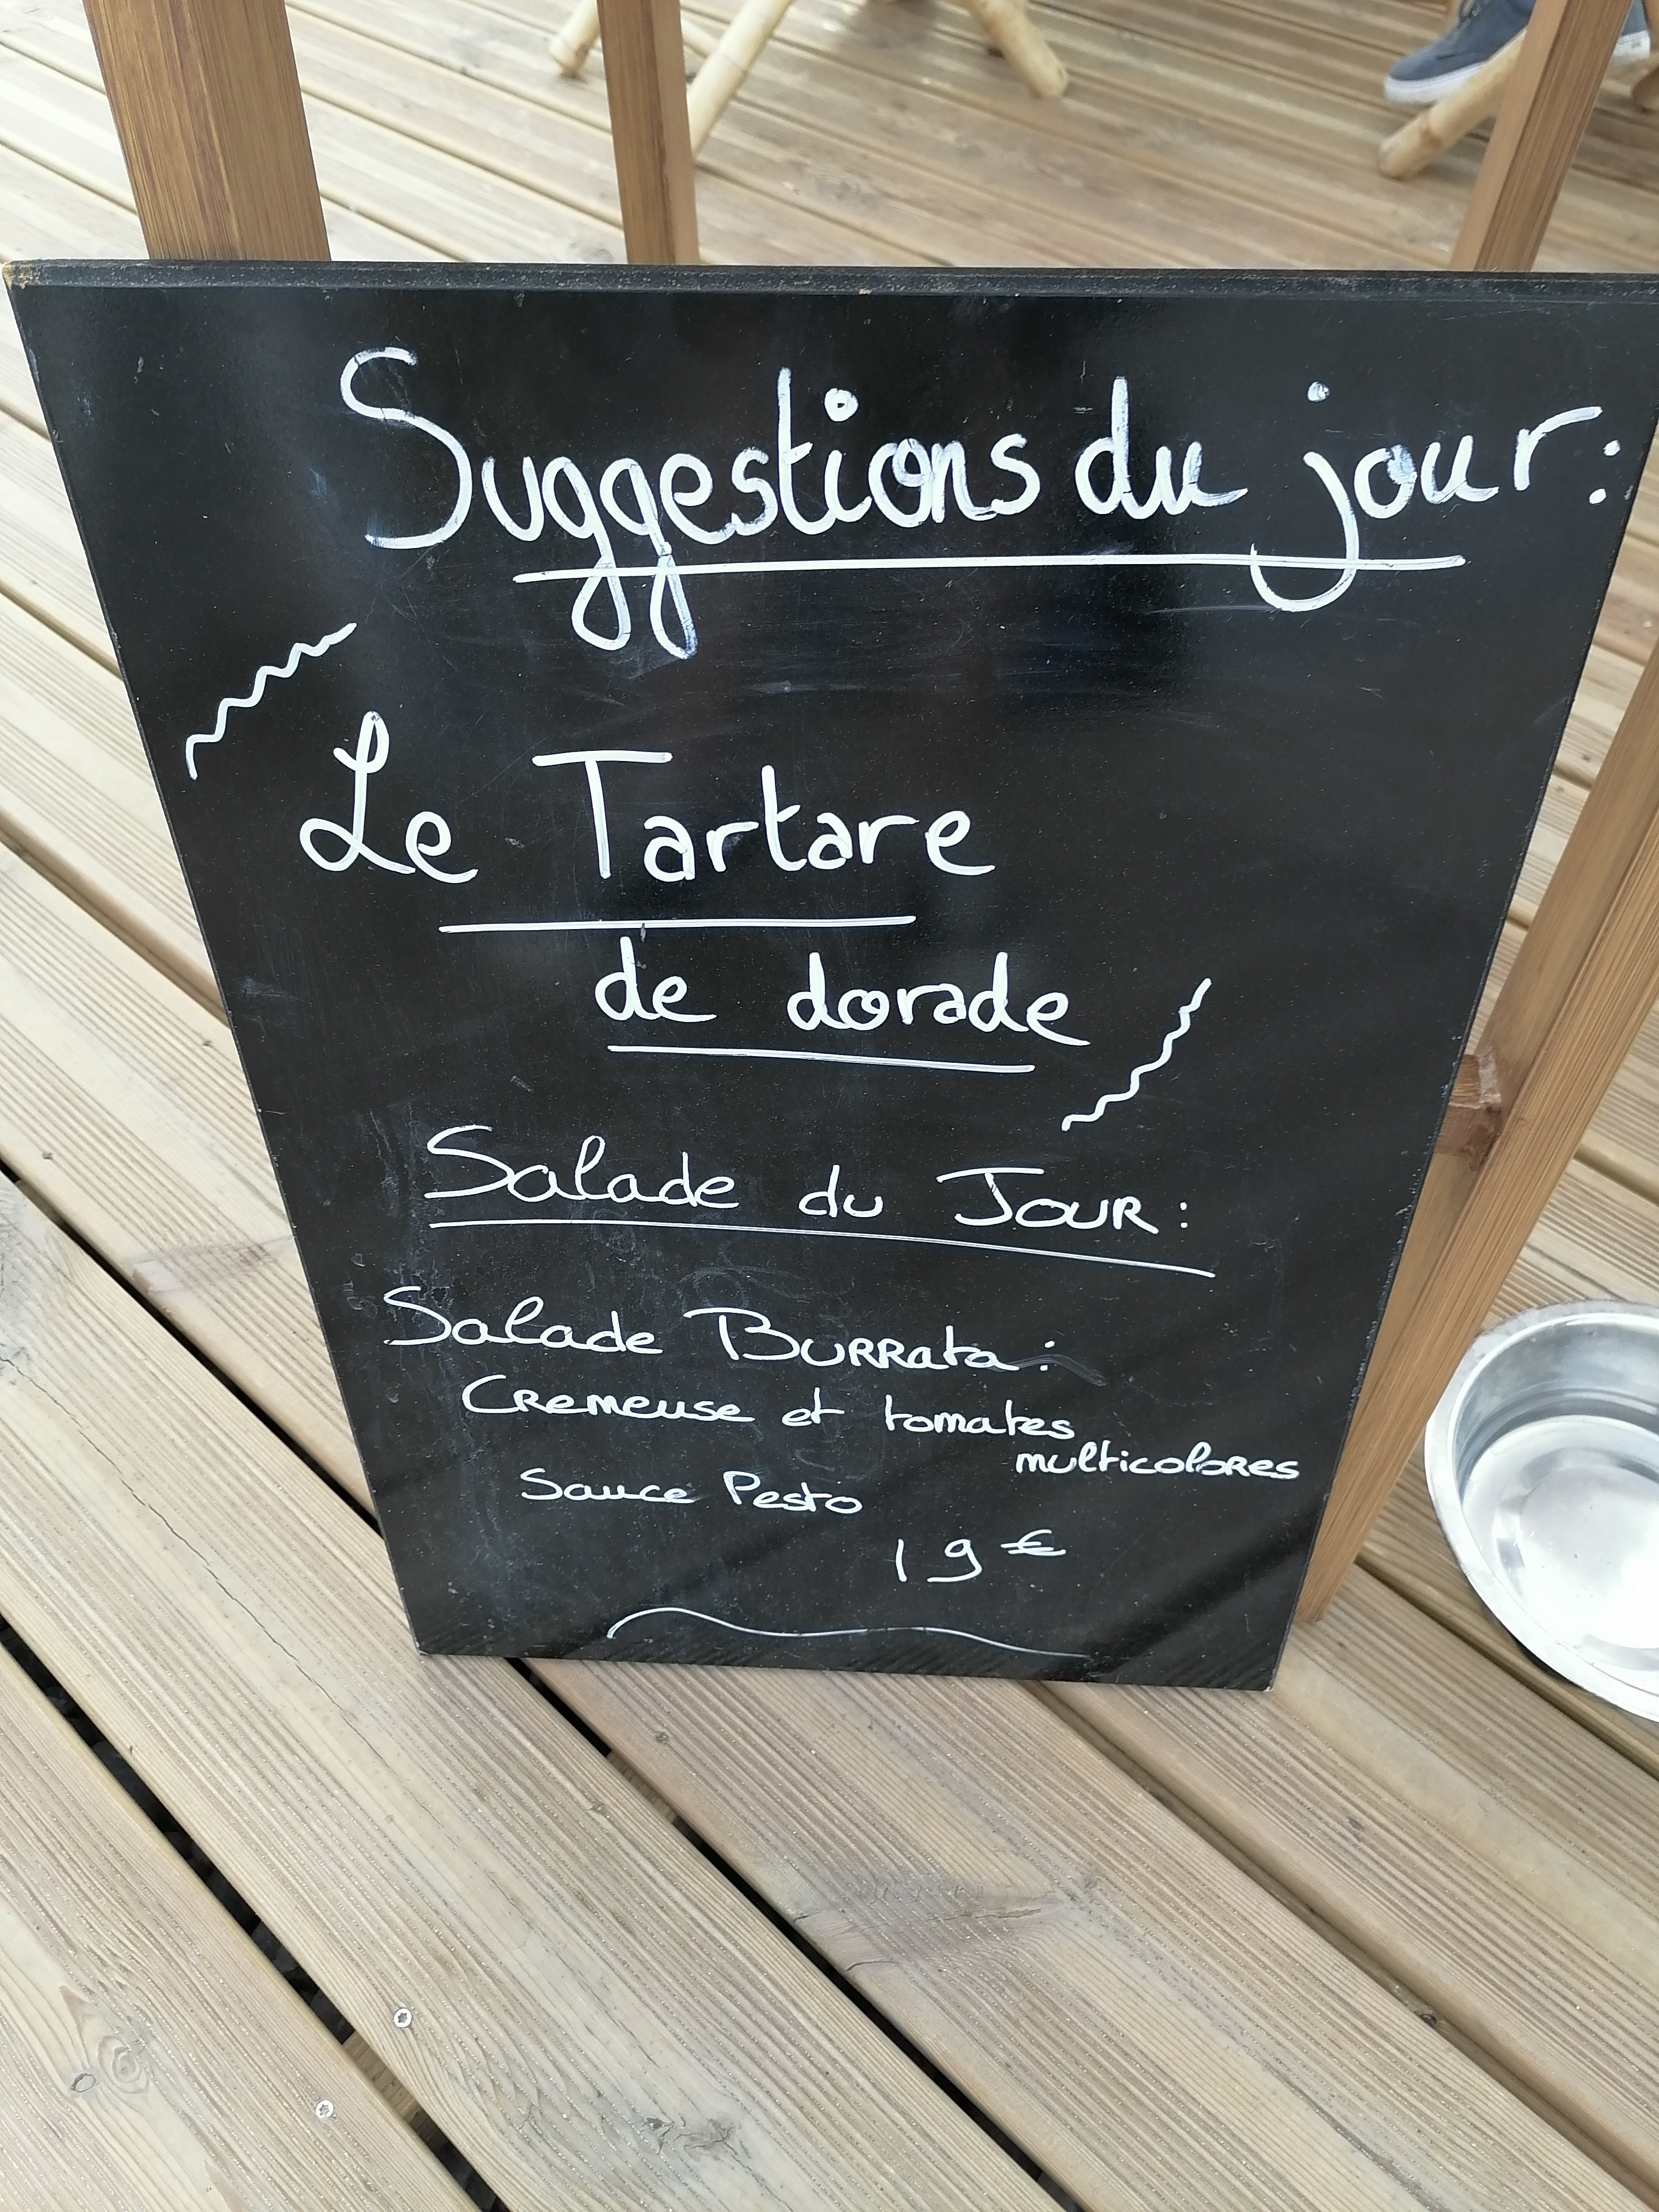 Suggestions du jour:
Le Tartare
de dorade
Salade du JOUR:
Salade BURRata:
CRemeuse et tomates
multicoloRes
Sauce Pesto
19 €